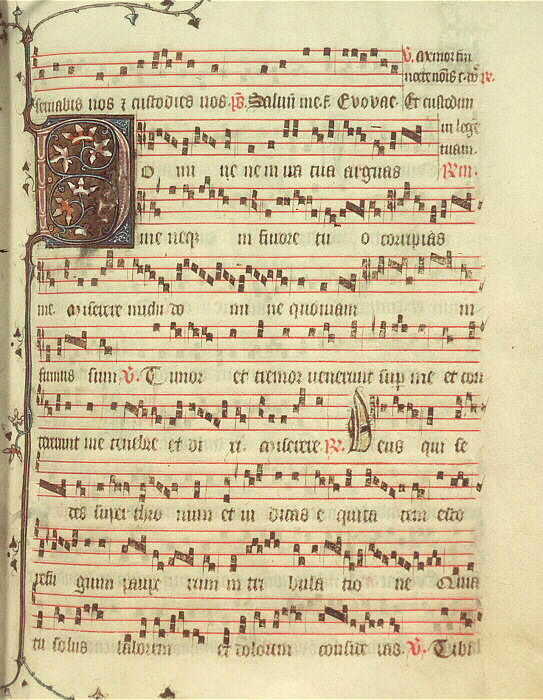 seruabis nos ⁊ custodies nos. Saluū me f. Evovae. Et custodiā
in lege
tuam.
Rm.
O mi ne ne in ira tua arguas
me neqʒ in furore tu o corripias
me. Miserere michi do mi ne quoniam in
firmus sum ℣. Timor et tremor uenerunt sup me et con
texerunt me tenebre et di xi. Miserere ℟. Deus qui se
des super thro num et iu dicas e quita tem esto
refu gium paupe rum in tri bula tio ne Quia
tu solus laborem et dolorem conside ras ℣. Tibi